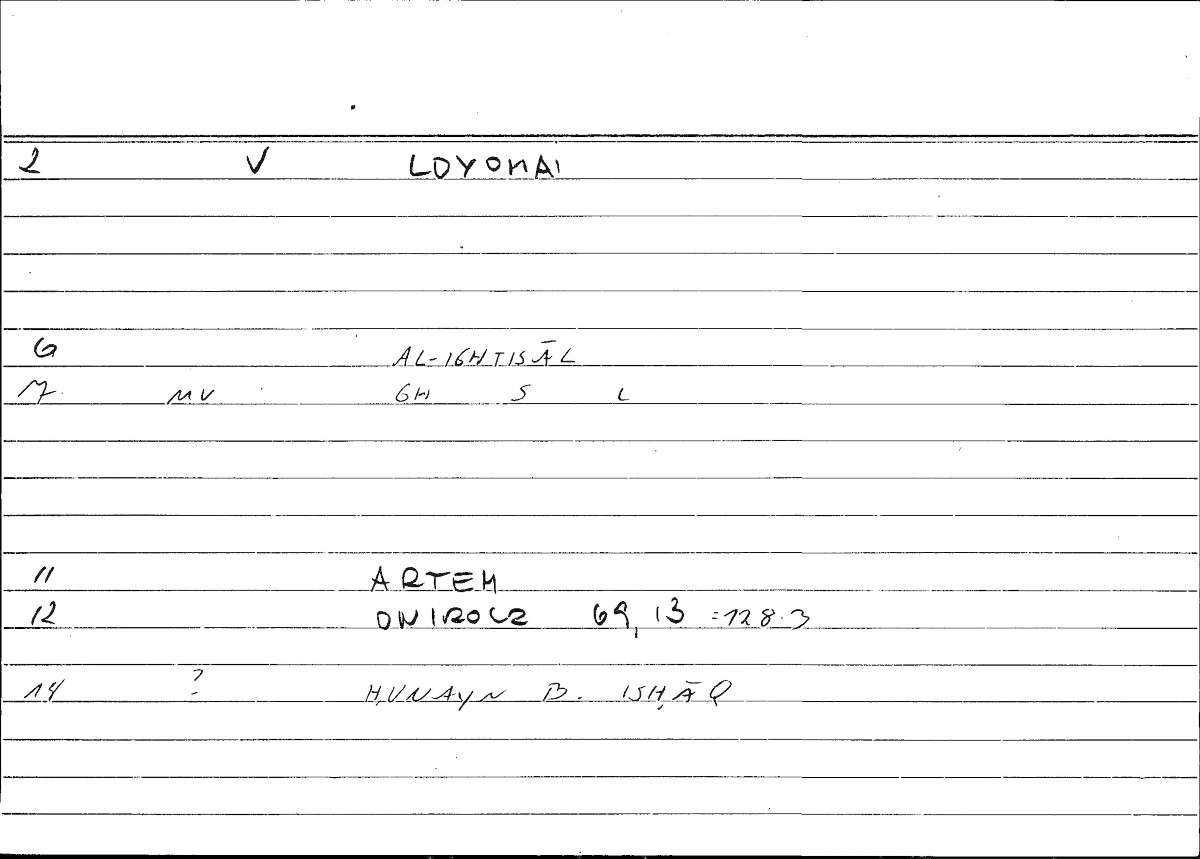 2 V LOYOMAI
6 AL-IGHTISĀL
7 MV GH S L
11 ARTEM
12 ONIROCR 69, 13 =128.3
14 ? ḤUNAYN B. ISḤĀQ